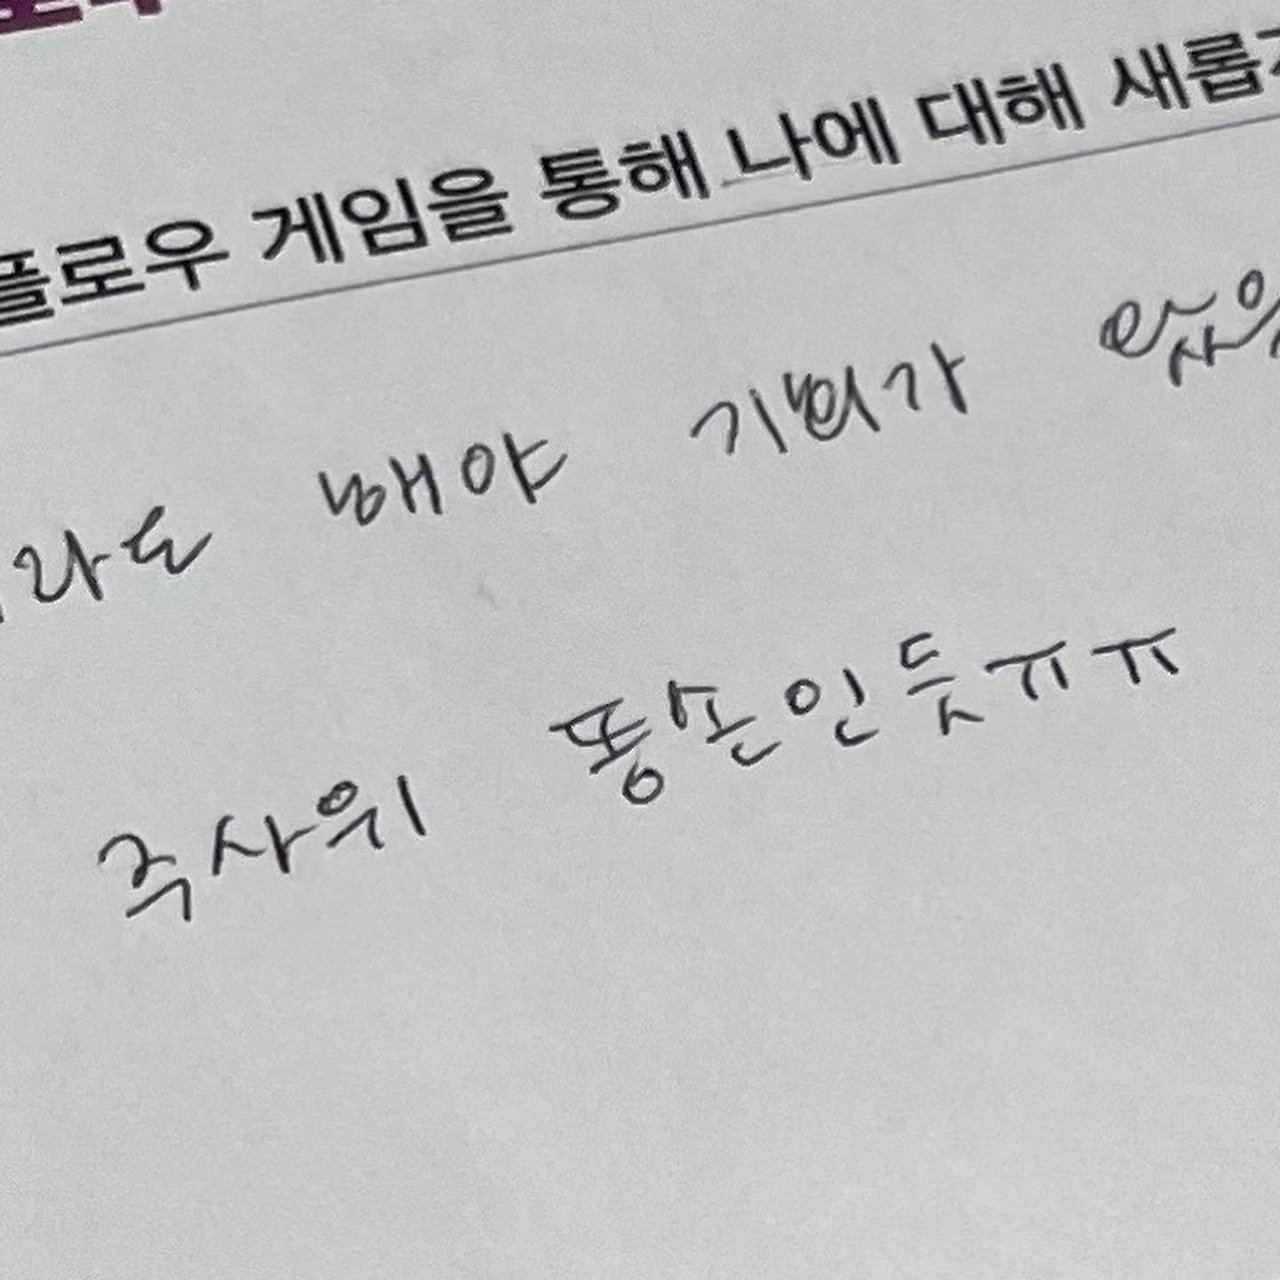 플로우 게임을 통해 나에 대해 새롭
라도 해야 기회가
주사위 똥손인듯ㅠㅠ